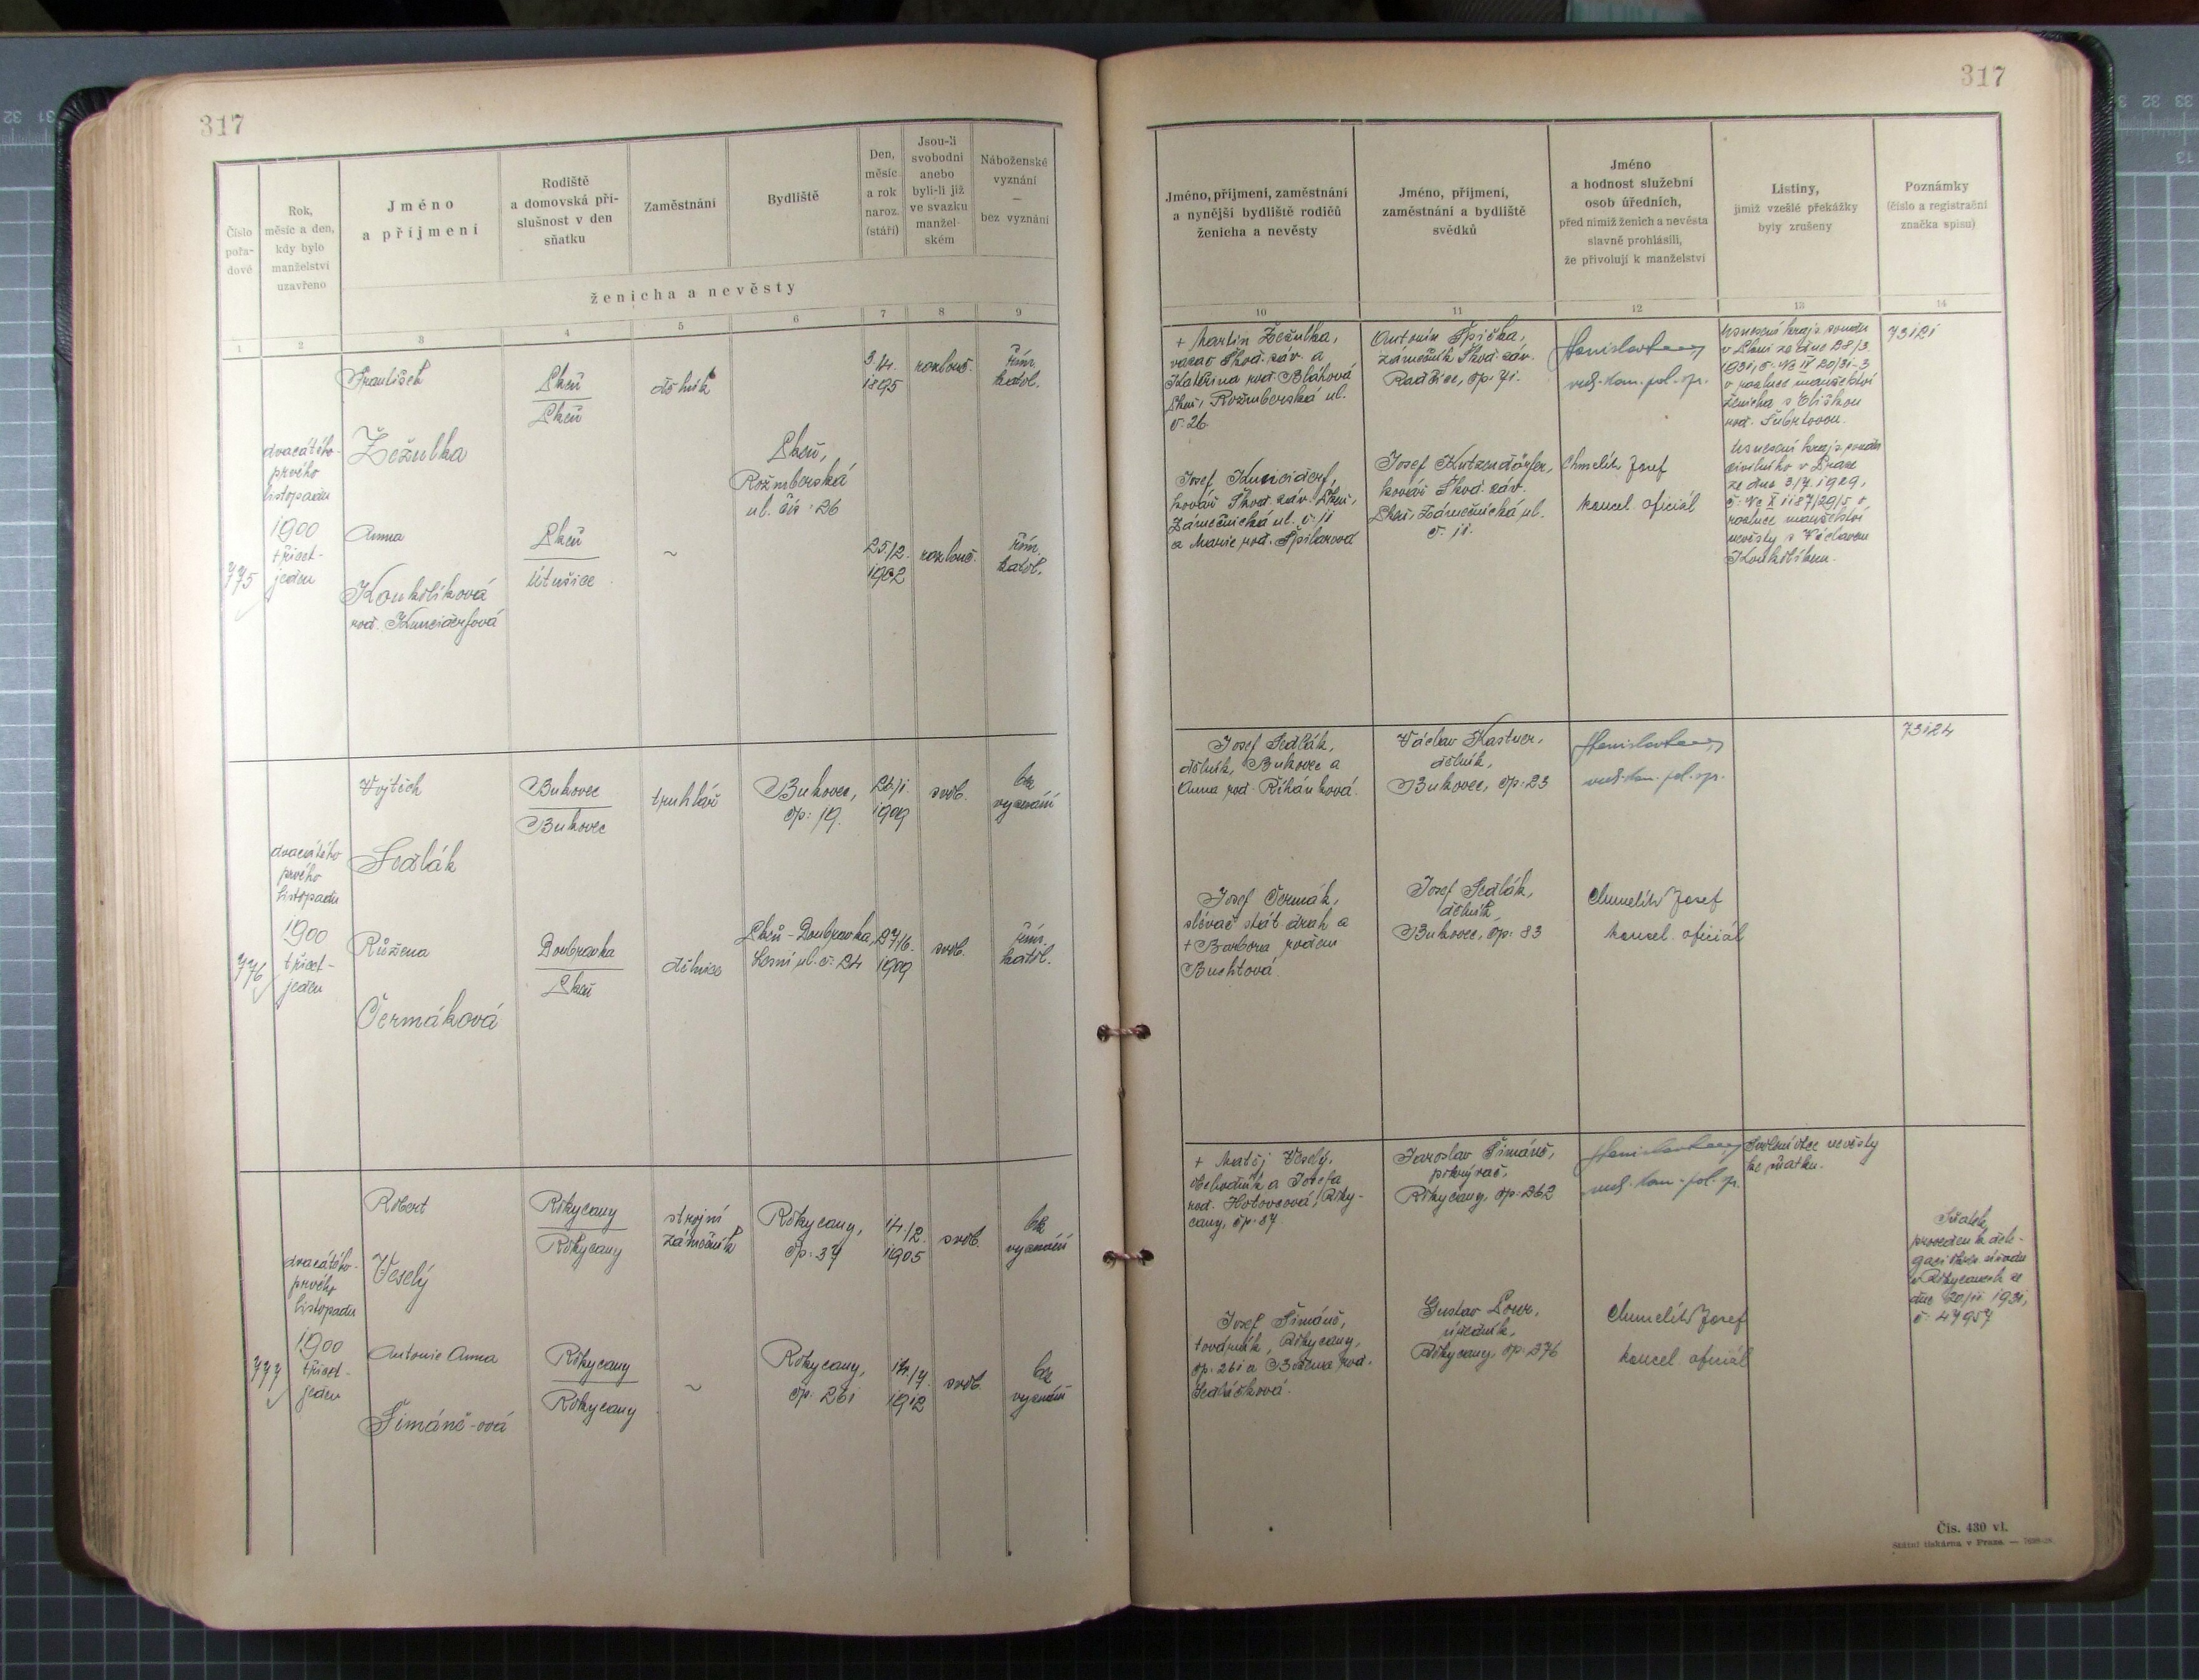 317
Číslo
pořa-
dové
Rok,
měsíc a den,
kdy bylo
manželství
uzavřeno
Jméno
a příjmení
Rodiště
a domovská pří-
slušnost v den
sňatku
Zaměstnání
Bydliště
Den,
měsíc
a rok
naroz.
(stáří)
Jsou-li
svobodni
anebo
byli-li již
ve svazku
manžel-
ském
Náboženské
vyznání
—
bez vyznání
ženicha a nevěsty
1 2 3 4 5 6 7 8 9
775
dvacátého-
prvého
listopadu
1900
třicet-
jeden
František
Žežulka
Plzeň
Plzeň
dělník
Plzeň,
Rožmberská
ul. čís. 26
3./4.
1895
rozlouč.
řím.
katol.
Anna
Kouhelíková
rod. Kunciderfová
Plzeň
Útušice
~
25./2.
1902
rozlouč.
řím.
katol.
776
dvacátého
prvého
listopadu
1900
třicet-
jeden
Vojtěch
Sedlák
Bukovec
Bukovec
truhlář
Bukovec,
čp. 19.
1909
svob.
bez
vyznání
Růžena
Čermáková
Doubravka
Plzeň
dělnice
Plzeň-Doubravka,
Lesní ul. č. 24
27/6.
1909
svob.
řím.
katol.
777
dvacátého-
prvého
listopadu
1900
třicet-
jeden
Robert
Veselý
Rokycany
Rokycany
strojní
zámečník
Rokycany,
čp. 37
14./2.
1905
svob.
bez
vyznání
Antonie Anna
Šimáně-ová
Rokycany
Rokycany
~
Rokycany,
čp. 261
14./7.
1912
svob.
bez
vyznání
317
Jméno, příjmení, zaměstnání
a nynější bydliště rodičů
ženicha a nevěsty
Jméno, příjmení,
zaměstnání a bydliště
svědků
Jméno
a hodnost služební
osob úředních,
před nimiž ženich a nevěsta
slavně prohlásili,
že přivolují k manželství
Listiny,
jimiž vzešlé překážky
byly zrušeny
Poznámky
(číslo a registrační
značka spisu)
10 11 12 13 14
+ Martin Žežulka,
vazač Škod. záv. a
Kateřina rod. Bláhová
Plzeň, Rožmberská ul.
č. 26.
Antonín Špička,
zámečník Škod. záv.
Radčice, čp. 71.
vrch. kom. pol. sp.
Usnesení kraj. soudu
v Plzni ze dne 28/3
1931, č. Nc IV 20/31-3
o rozluce manželství
ženicha s Eliškou
rod. Šubrtovou.
73121
Josef Kunciderf,
kovář Škod. záv. Plzeň,
Zámečnická ul. č. 11
a Marie rod. Špilarová
Josef Kutzendörfer,
kovář Škod. záv.
Plzeň, Zámečnická ul.
č. 11.
Chmelík Josef
kancel. oficiál
Usnesení kraj. soudu
civilního v Praze
ze dne 3/7. 1929,
č. Nc II 1187/29/5 o
rozluce manželství
nevěsty s Václavem
Kouhelíkem.
Josef Sedlák,
dělník, Bukovec a
Anna rod. Říhánková.
Václav Kastner,
dělník,
Bukovec, čp. 23
vrch. kom. pol. sp.
73124
Josef Čermák,
slévač stát. drah a
+ Barbora rodem
Buchtová.
Josef Sedlák,
dělník
Bukovec, čp. 83
Chmelík Josef
kancel. oficiál
+ Matěj Veselý,
obchodník a Josefa
rod. Hotovcová, Roky-
cany, čp. 37.
Jaroslav Šimáně,
Rokycany, čp. 262
vrch. kom. pol. sp.
Svolení otce nevěsty
ke sňatku.
Josef Šimáně,
továrník, Rokycany,
čp. 261 a Božena rod.
Sedláčková.
Gustav Lowr,
úředník,
Rokycany, čp. 276
Chmelík Josef
kancel. oficiál
Sňatek
proveden z dele-
gace okres. úřadu
v Rokycanech ze
dne 20/11 1931,
č. 47957
Čís. 430 vl.
Státní tiskárna v Praze. —